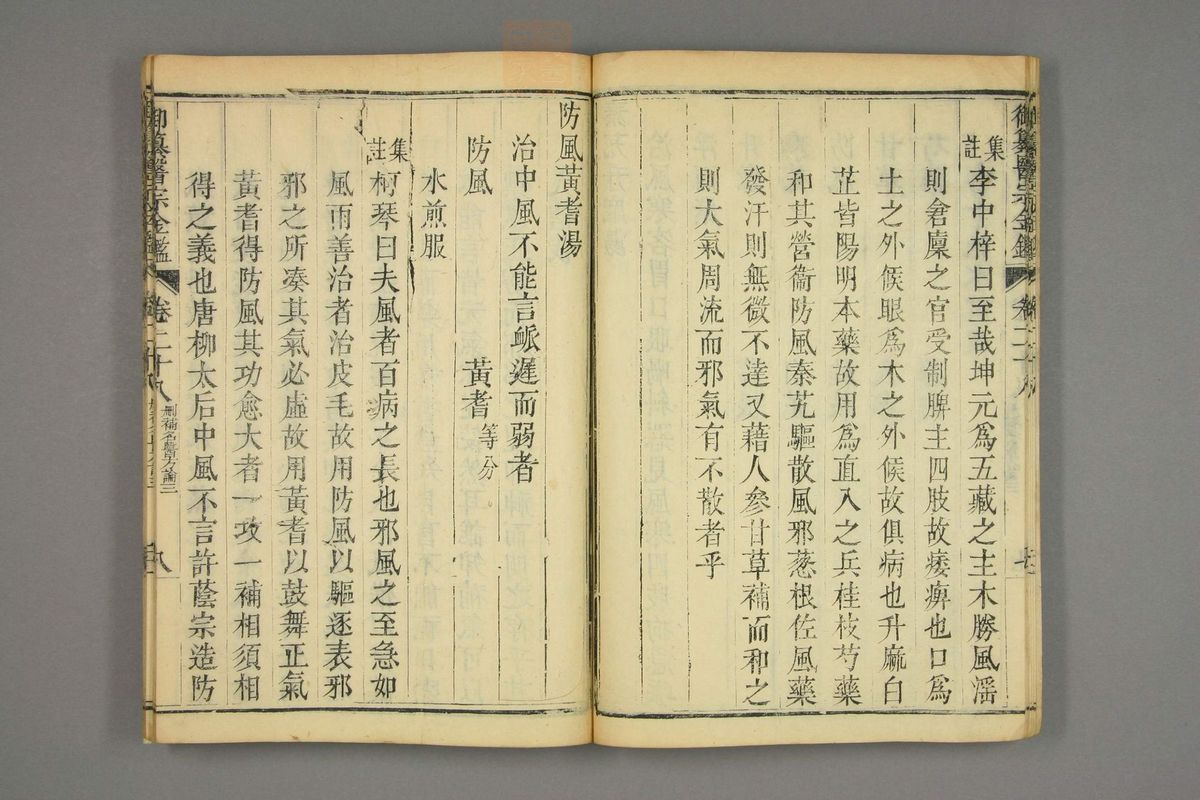 御纂醫宗金鑑 卷二十八
集註 李中梓曰至哉坤元爲五藏之主木勝風淫
則倉廩之官受制脾主四肢故痿痺也口爲
土之外候眼爲木之外候故俱病也升麻白
芷皆陽明本藥故用爲直入之兵桂枝芍藥
和其營衞防風秦艽驅散風邪葱根佐風藥
發汗則無微不達又藉人參甘草補而和之
則大氣周流而邪氣有不散者乎
防風黃耆湯
治中風不能言脈遲而弱者
防風 黃耆 等分
水煎服
集註 柯琴曰夫風者百病之長也邪風之至急如
風雨善治者治皮毛故用防風以驅逐表邪
邪之所凑其氣必虛故用黃耆以鼓舞正氣
黃耆得防風其功愈大者一攻一補相須相
得之義也唐柳太后中風不言許蔭宗造防
御纂醫宗金鑑 卷二十八 刪補名醫方論三 八